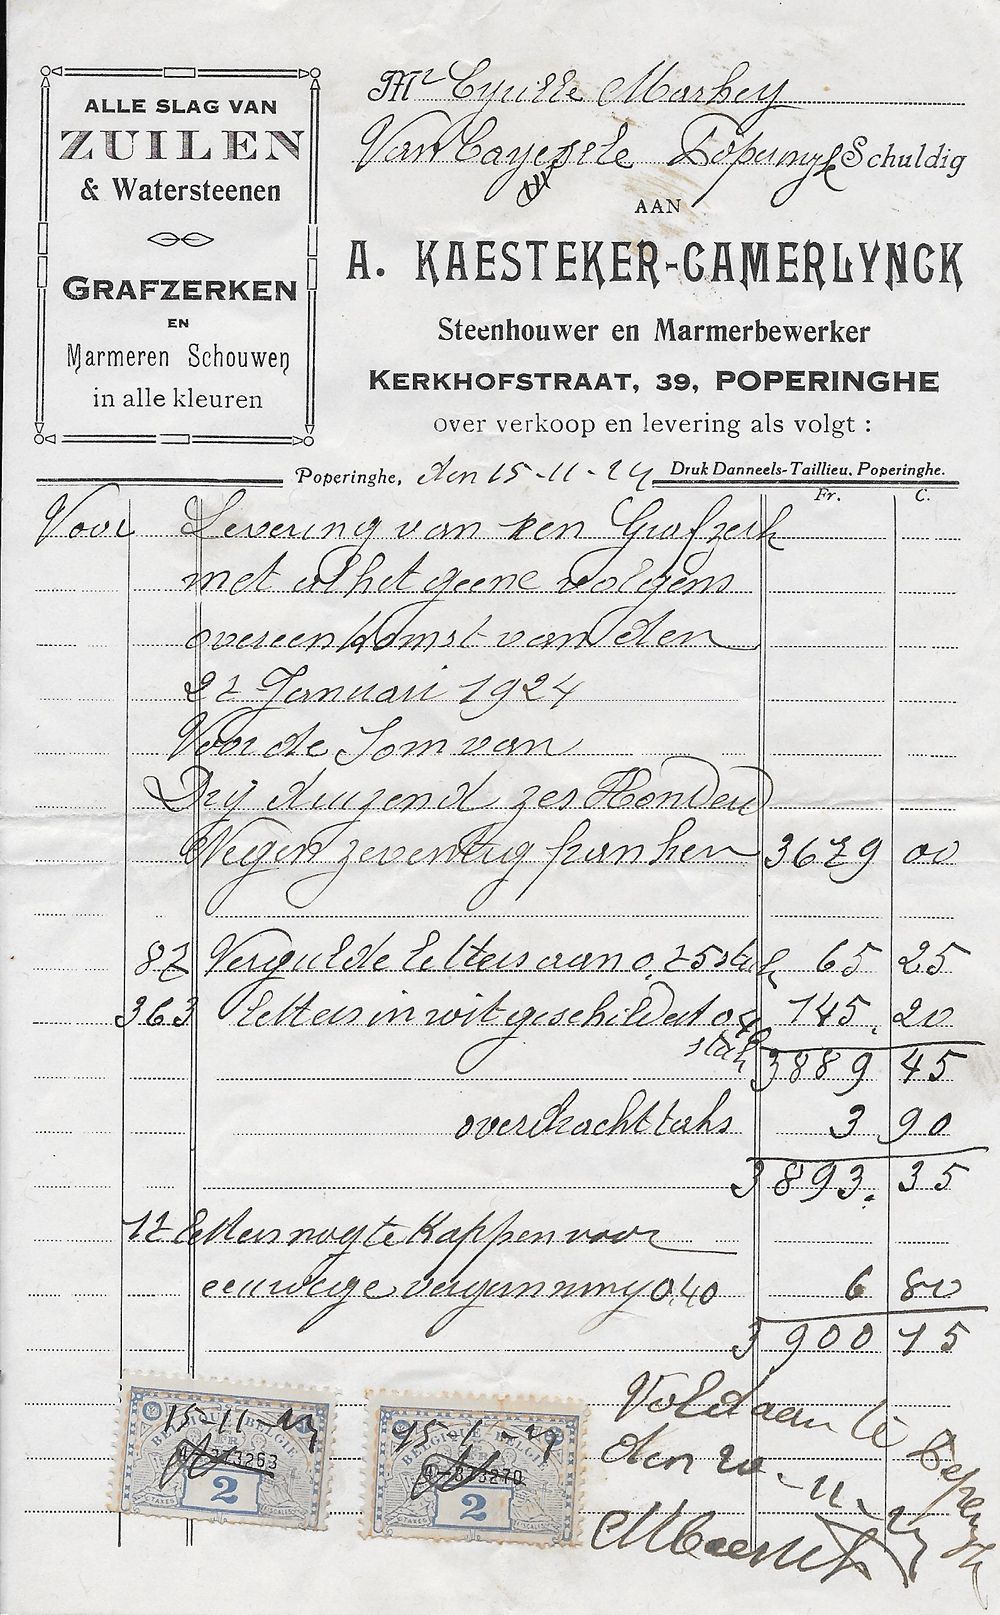 ALLE SLAG VAN
ZUILEN
& Watersteenen
GRAFZERKEN
EN
Marmeren Schouwen
in alle kleuren
Mr Cyrille
Schuldig
AAN
A. KAESTEKER-CAMERLYNCK
Steenhouwer en Marmerbewerker
KERKHOFSTRAAT, 39, POPERINGHE
over verkoop en levering als volgt :
Poperinghe, den 15-11-24 Druk Danneels-Taillieu. Poperinghe.
Fr. C.
Voor Levering van een Grafzerk
met al het geene volgens
overeenkomst van den
27 Januari 1924
Voor de Som van
Drij duizend zes Honderd
Negen zeventug franken 3679 00
87 Vergulde letters aan 0,75 stuk 65 25
363 letters in wit geschilderd 0,40 145. 20
stuk 3889 45
overdracht taks 3 90
3893. 35
17 letters nog te Kappen voor
eeuwige vergunning 0,40 6 80
3900 15
15-11-24
BELGIQUE-BELGIË
373263
2
TAXES FISCALES
15-11-24
BELGIQUE-BELGIË
373270
2
TAXES FISCALES
Voldaan te
den 20-11-24